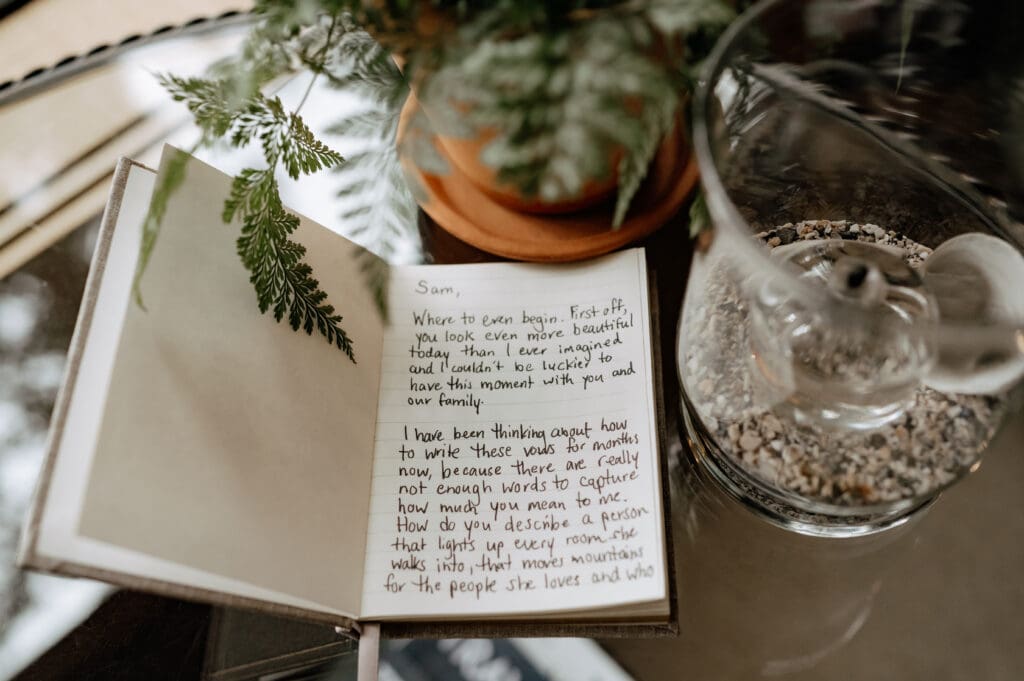 Sam,
Where to even begin. First off,
you look even more beautiful
today than I ever imagined
and I couldn't be luckier to
have this moment with you and
our family.
I have been thinking about how
to write these vows for months
now, because there are really
not enough words to capture
how much you mean to me.
How do you describe a person
that lights up every room she
walks into, that moves mountains
for the people she loves and who